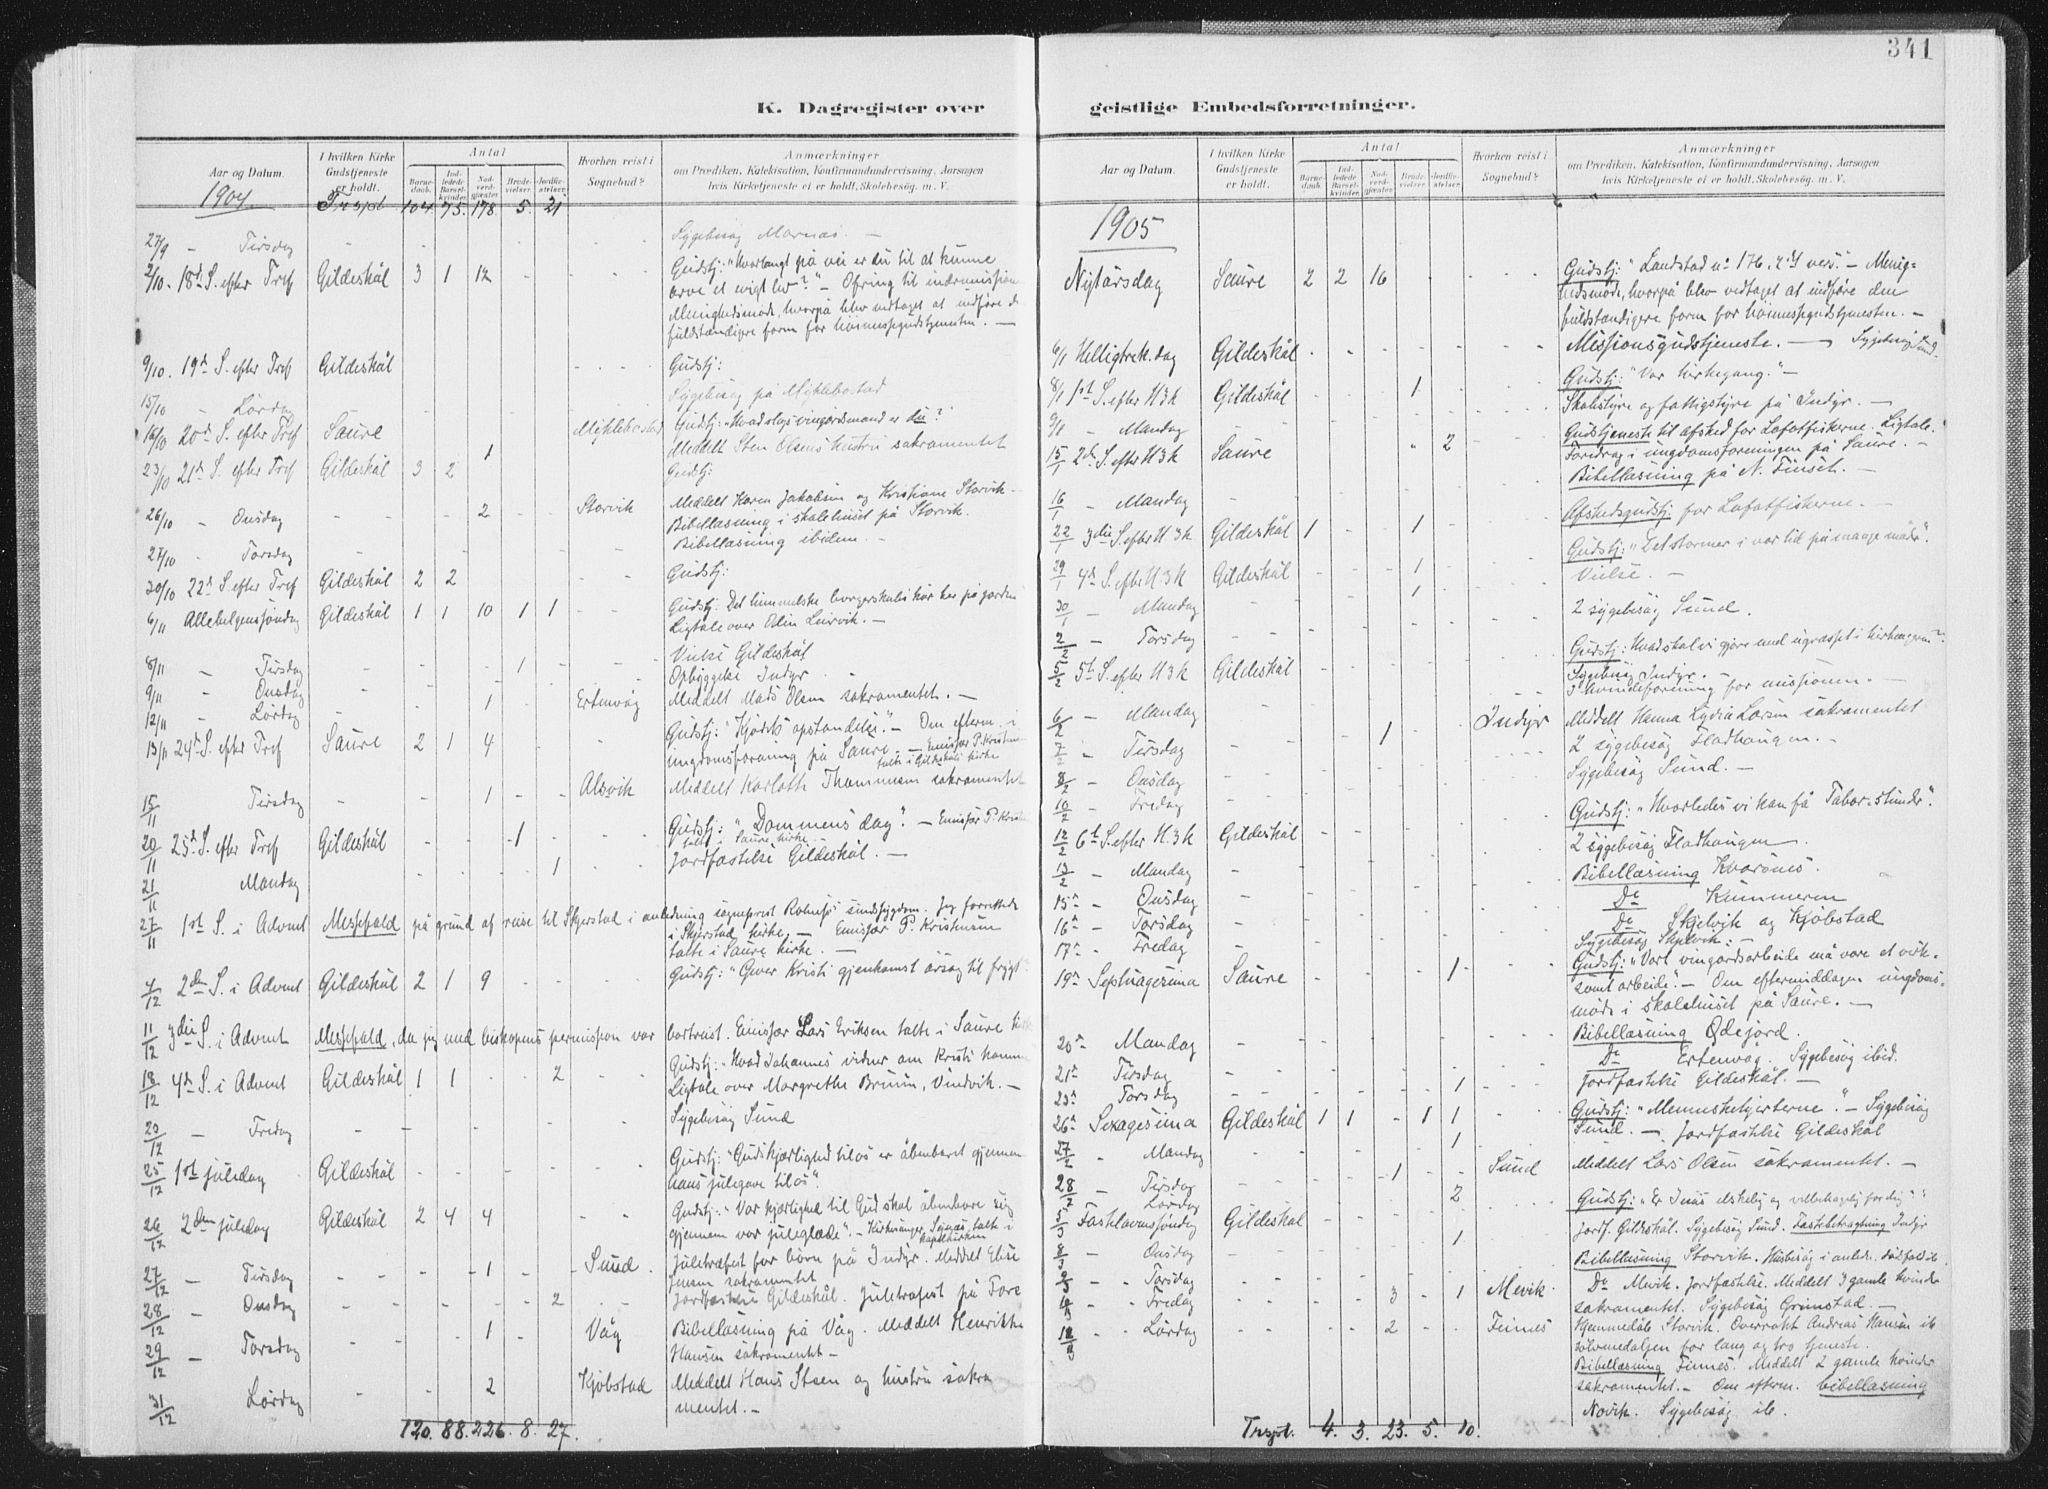 341
K. Dagregister over geistlige Embedsforretninger.
Aar og Datum. | I hvilken Kirke Gudstjeneste er holdt. | Antal | Barne-daab. | Ind-ledede Barsel-kvinder. | Nad-verd-gjæster. | Brude-vielser. | Jordfæ-stelser. | Hvorhen reist i Sognebud? | Anmærkninger om Prædiken, Katekisation, Konfirmandundervisning, Aarsagen hvis Kirketjeneste ei er holdt, Skolebesøg. m. V.
1904. Trspt 104. 75. 178. 5. 21
27/9 – Tirsdag Sygebesøg Marnæs. –
2/10. 18de S. efter Tref Gildeskål 3 1 12 Gudstj: "Hvorlangt på vei er du til at kunne
arve et evigt liv?" – Ofring til indremission
Menighedsmøde, hvorpå blev vedtaget at indføre d
fuldstændigere form for høimessegudstjenesten. –
9/10. 19de S. efter Tref Gildeskål Gudstj:
15/10 – Lørdag Sygebesøg på Myklebostad
16/10 20de S. efter Tref Saure Myklebostad Gudstj: "Hvadslags vingårdsmand er du?"
1 Meddelt Sten Olsens hustru sakramentet
23/10 21de S. efter Tref Gildeskål 3 2 Gudstj:
26/10 – Onsdag 2 Storvik Meddelt Karen Jakobsen og Kristiane Storvik –
Bibellæsning i skolehuset på Storvik.
27/10 – Torsdag Bibellæsning ibidem. –
30/10 22de S. efter Tref Gildeskål 2 2 Gudstj:
6/11 Allehelgenssøndag Gildeskål 1 1 10 1 1 Gudstj: Det himmelske borgerskabs kår her på jorden
Ligtale over Edin Leirvik. –
8/11 – Tirsdag 1 Vielse Gildeskål
9/11 – Onsdag Opbyggelse Indyr.
12/11 – Lørdag 1 Ertenvåg Meddelt Mads Olsen sakramentet. –
13/11 24de S. efter Tref Saure 2 1 4 Gudstj: "Kjødets opstandelse". – Om efterm. i
ungdomsforening på Saure. – Emissær P. Kristen
talte i Gildeskål kirke
15/11 Tirsdag 1 Alsvik Meddelt Karlotte Thommesen sakramentet
20/11 25de S. efter Tref Gildeskål 1 Gudstj: "Dommens dag". – Emissær P. Krist
talte i Saure kirke
21/11 Mandag 1 Jordfæstelse Gildeskål. –
27/11 1st S. i Advent Messefald på grund af reise til Skjerstad i anledning sognepræst sindssygdom. Jeg forrettede
i Skjerstad kirke – Emissær P. Kristensen
talte i Saure kirke. –
4/12 2den S. i Advent Gildeskål 2 1 9 Gudstj: "Giver Kristi gjenkomst årsag til frygt"
11/12 3die S. i Advent Messefald, da jeg med biskopens permission var bortreist. Emissær Lars Eriksen talte i Saure
18/12 4de S. i Advent Gildeskål 1 1 2 Gudstj: "Hvad Johannes vidner om Kristi komme
Ligtale over Margrethe Bruun, Vindvik. –
20/12 – Fredag Sygebesøg Sund
25/12 1ste juledag Gildeskål Gudstj: "Guds kjærlighed til os er åbenbaret gjennem
hans julegave til os".
26/12 2den juledag Gildeskål 2 4 4 Gudstj: "Vor kjærlighed til Gud skal åbenbare sig
gjennem vor juleglæde". – Kirkesanger talte i
kapelkirken
27/12 – Tirsdag 1 Sund. Juletræfest for børn på Indyr. Meddelt Elise
Jensen sakramentet
28/12 – Onsdag 2 Jordfæstelse Gildeskål. Juletræfest på Fore
29/12 – Torsdag 1 Våg Bibellæsning på Våg. Meddelt Henrikke
Hansen sakramentet –
31/12 Lørdag 2 Kjøbstad Meddelt Hans Steen og hustru sakra
mentet. –
120. 88. 226. 8. 27.
Aar og Datum. | I hvilken Kirke Gudstjeneste er holdt. | Antal | Barne-daab. | Ind-ledede Barsel-kvinder. | Nad-verd-gjæster. | Brude-vielser. | Jordfæ-stelser. | Hvorhen reist i Sognebud? | Anmærkninger om Prædiken, Katekisation, Konfirmandundervisning, Aarsagen hvis Kirketjeneste ei er holdt, Skolebesøg. m. V.
1905
Nytårsdag Saure 2 2 16 Gudstj: "Landstad no 176, vers". – Menig-
hedsmøde, hvorpå blev vedtaget at indføre den
fuldstændigere form for høimessegudstjenesten. –
6/1 Helligtrek. dag Gildeskål Missionsgudstjeneste. – Sygebesøg Sund.
8/1 1st S. efter H3k Gildeskål 1 Gudstj: "Vor kirkegang." –
9/1 – Mandag Skolestyre og fattigstyre på Indyr. –
15/1 2den S. efter H3k Saure 2 Gudstjeneste til afsked for Lofotfiskerne. Ligtale.
Foredrag i ungdomsforeningen på Saure. –
16/1 – Mandag Bibellæsning på N. Finset. –
22/1 3die S. efter H3k Gildeskål 1 1 Afskedsgudstj: for Lofotfiskerne. –
29/1 4de S. efter H3k Gildeskål 1 Gudstj: "Det stormer i vor tid på mange måder".
30/1 – Mandag 1 Vielse. –
2/2 – Torsdag 2 sygebesøg Sund.
5/2 5te S. efter H3k Gildeskål Gudstj: Hvad skal vi gjøre med ugræsset i kirkens?
6/2 – Mandag Sygebesøg Indyr. –
I kvindeforening for missionen. –
7/2 – Tirsdag 1 Indyr Meddelt Hanna Lydia Larsen sakramentet
8/2 – Onsdag 2 sygebesøg Fladhaugen. –
10/2 – Fredag Sygebesøg Sund. –
12/2 6te S. efter H3k Gildeskål Gudstj: "Hvorledes vi kan få Tabor-stunder".
13/2 – Mandag 2 sygebesøg Fladhaugen.
15de – Onsdag Bibellæsning Kvarsnes.
16de – Torsdag Do Kummeren
17de – Fredag Do Skjelvik og Kjøbstad
Sygebesøg Skjelvik. –
19de Septuagesima Saure 1 Gudstj: "Vort vingårdsarbeide må være et virk-
somt arbeide". – Om eftermiddagen ungdoms-
møde i skolehuset på Saure. –
20de Mandag Bibellæsning Ødejord.
21de – Tirsdag Do Ertenvåg. Sygebesøg ibid.
23de – Torsdag 1 Jordfæstelse Gildeskål. –
26de Sexagesima Gildeskål 1 1 1 1 Gudstj: "Menneskehjerterne." – Sygebesøg
Sund. –
27/2 – Mandag 1 Jordfæstelse Gildeskål
28/2 – Tirsdag 1 Sund Meddelt Lars Olsen sakramentet. –
Lørdag 2
5/3 Fastelavnssøndag Gildeskål Gudstj: "Er Jesus elskelig og velbehagelig for dig?"
8/3 – Onsdag 1 Jordf. Gildeskål. Sygebesøg Sund. Fastebetragtning Indyr
9/3 – Torsdag Bibellæsning Storvik. Husbesøg i anledn. dødsfald ib.
– Fredag 3 1 Mevik. Do Mevik. Jordfæstelse. Meddelt 3 gamle kvinder
sakramentet. Sygebesøg Grimstad. –
– Lørdag 2 Feines Storvik. Overrakt Andreas Hansen ib
sølvmedaljen for lang og tro tjeneste.
Bibellæsning Finnes. Meddelt 2 gamle kvinder
sakramentet. – Om efterm. bibellæsning
Novik. Sygebesøg ib.
Trspt. 4. 3. 23. 5. 10.